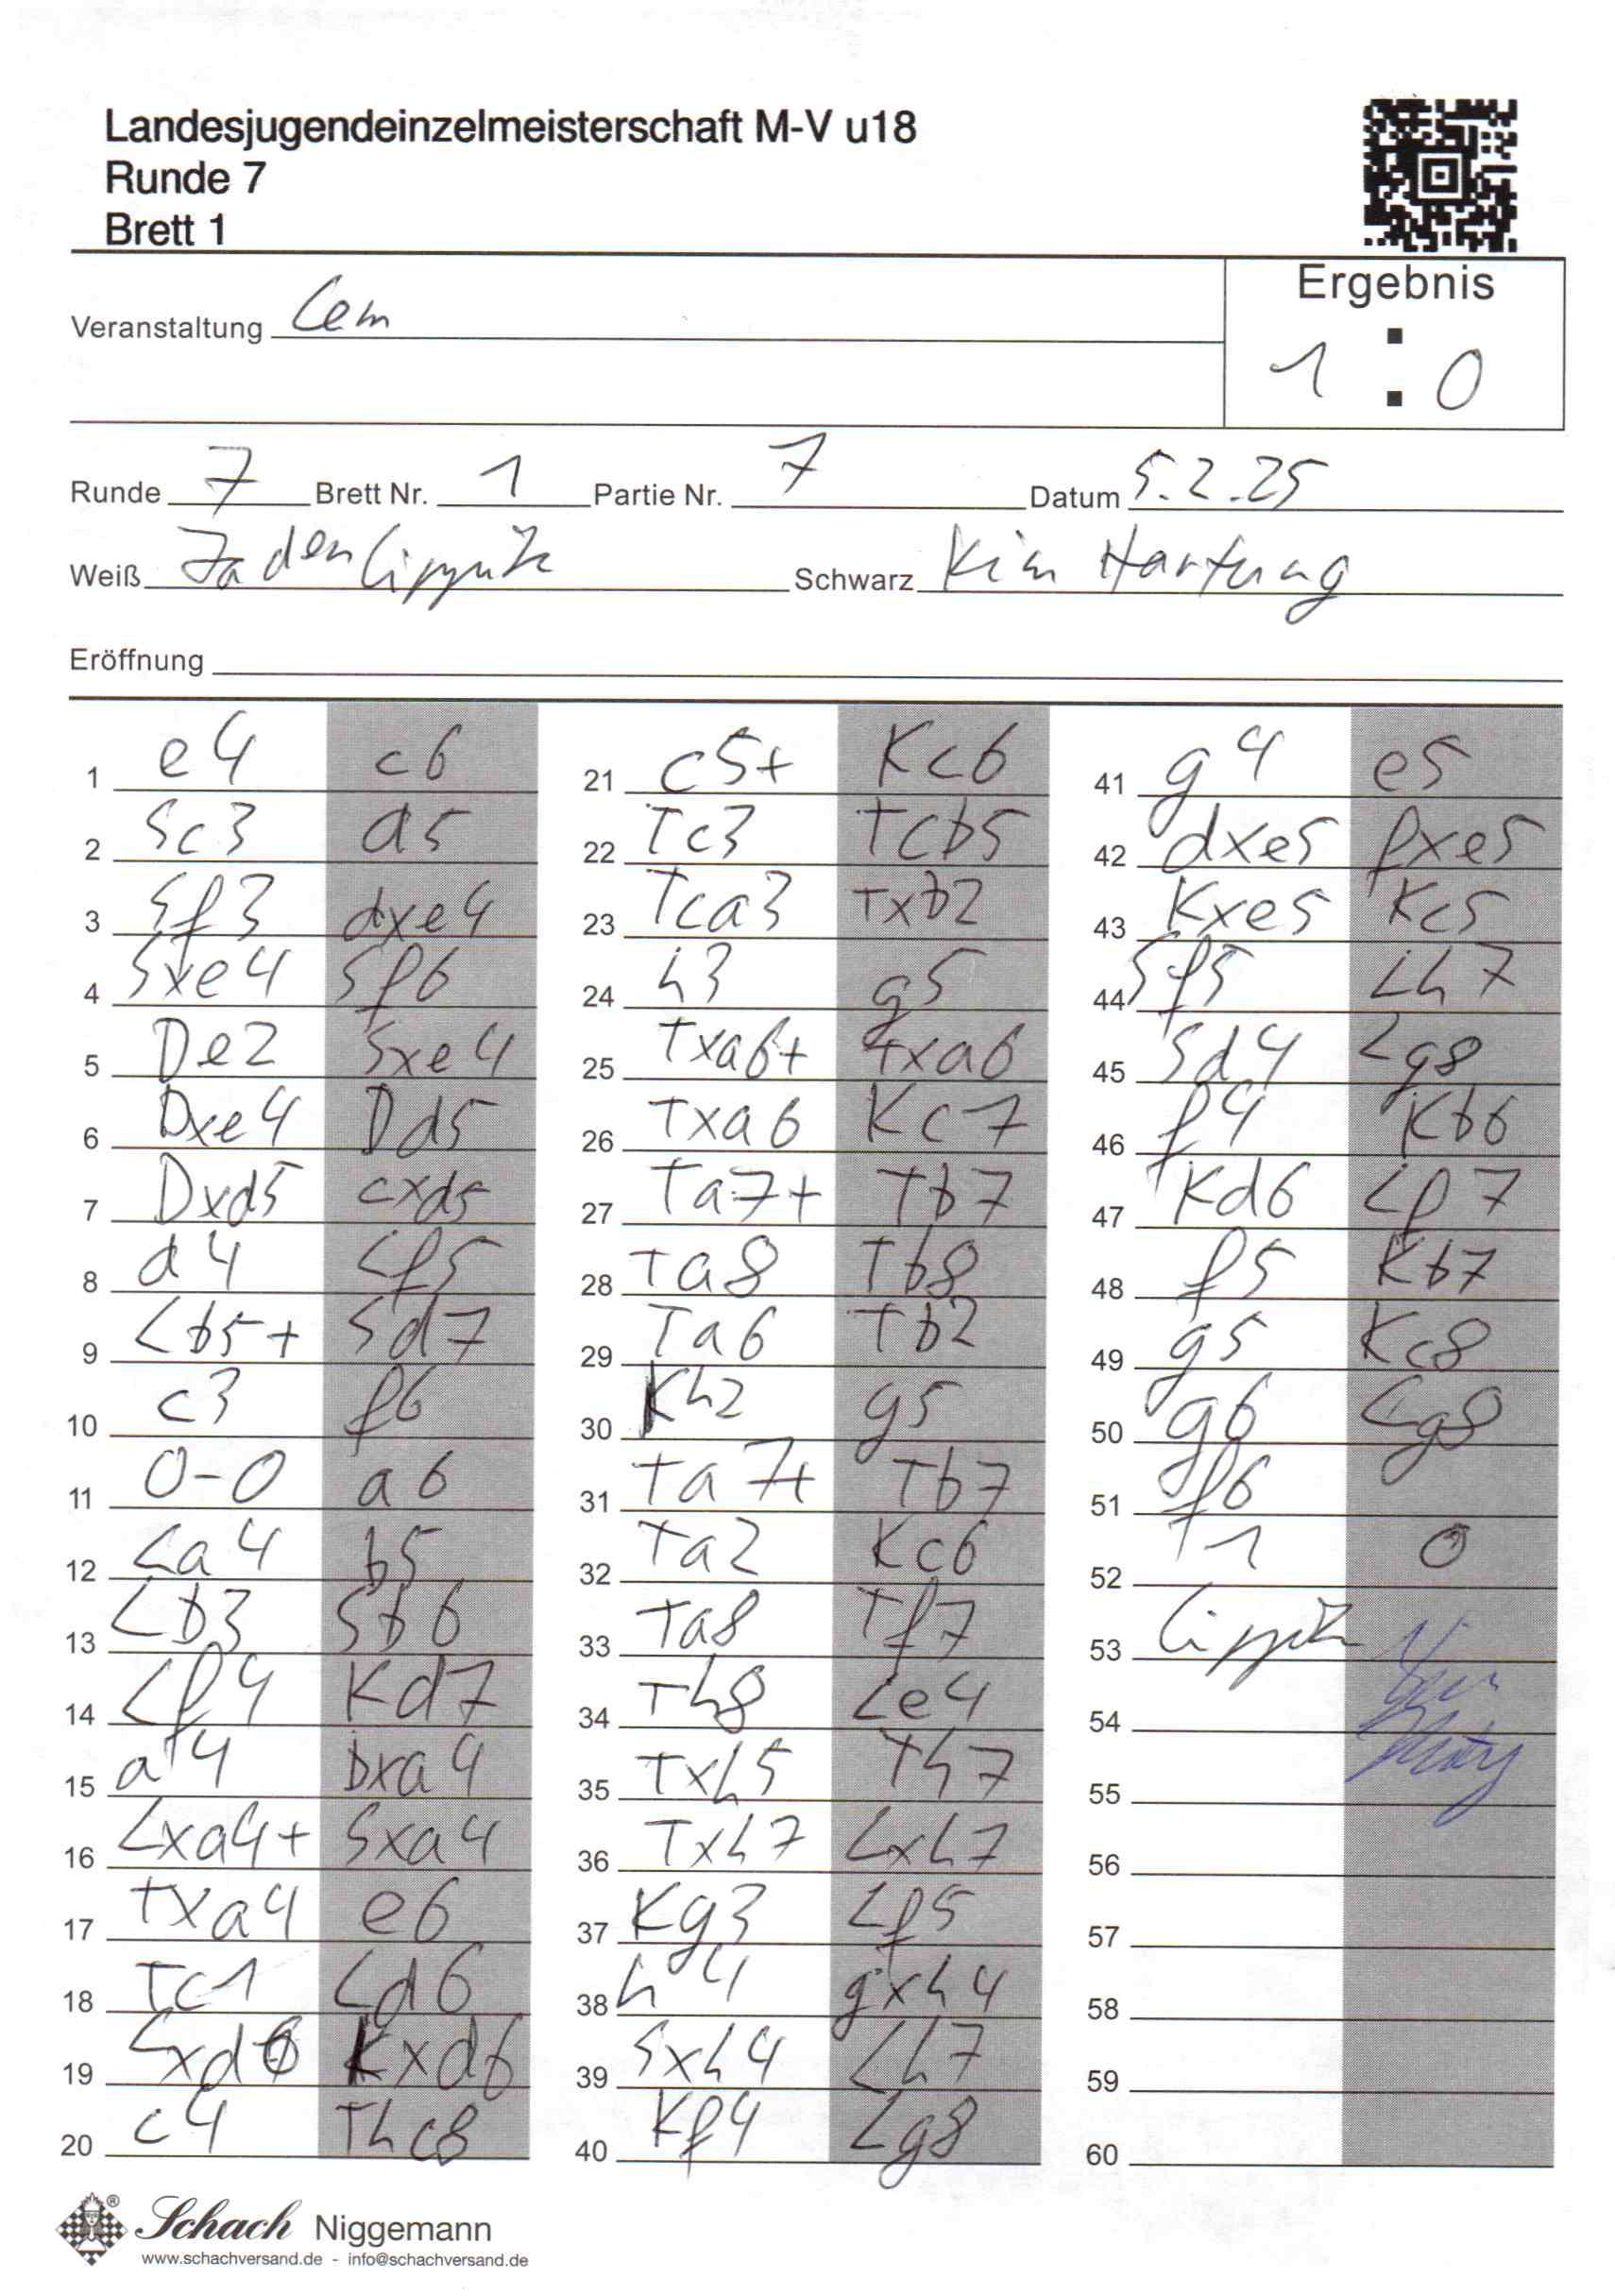 Landesjugendeinzelmeisterschaft M-V u18
Runde 7
Brett 1
Ergebnis
1 : 0
Veranstaltung Lem
Runde 7 Brett Nr. 1 Partie Nr. 7 Datum 5.2.25
Weiß Jaden Schwarz Kim Hartung
Eröffnung
1 e4 c6 21 c5+ Kc6 41 g4 e5
2 Sc3 d5 22 Tc3 Tcb5 42 dxe5 fxe5
3 Sf3 dxe4 23 Tca3 Txb2 43 Kxe5 Kc5
4 Sxe4 Sf6 24 h3 g5 44 Sf5 Lh7
5 De2 Sxe4 25 Txa6+ Txa6 45 Sd4 Lg8
6 Dxe4 Dd5 26 Txa6 Kc7 46 f4 Kb6
7 Dxd5 cxd5 27 Ta7+ Tb7 47 Kd6 Lf7
8 d4 Lf5 28 Ta8 Tb8 48 f5 Kb7
9 Lb5+ Sd7 29 Ta6 Tb2 49 g5 Kc8
10 c3 f6 30 Kh2 g5 50 g6 Lg8
11 0-0 a6 31 Ta7+ Tb7 51 f6
12 La4 b5 32 Ta2 Kc6 52 1 0
13 Lb3 Sb6 33 Ta8 Tf7 53
14 Lf4 Kd7 34 Th8 Le4 54
15 a4 bxa4 35 Txh5 Th7 55
16 Lxa4+ Sxa4 36 Txh7 Lxh7 56
17 Txa4 e6 37 Kg3 Lf5 57
18 Tc1 Ld6 38 h4 gxh4 58
19 Lxd6 Kxd6 39 Sxh4 Lh7 59
20 c4 Thc8 40 Kf4 Lg8 60
Schach Niggemann
www.schachversand.de - info@schachversand.de